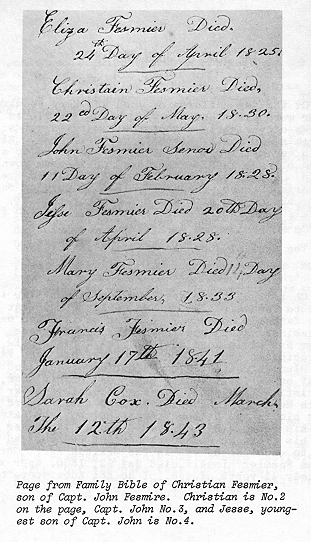 Eliza Fesmier Died.
24th Day of April 1825
Christain Fesmier Died,
22ed Day of May. 18.30.
John Fesmier Senor Died
11 Day of February 18.28.
Jesse Fesmier Died 20th Day
of April 18.28.
Mary Fesmier Died 14 Day
of September, 1833
Francis Fesmier Died
January 17th 1841
Sarah Cox. Died March,
The 12th 18.43
Page from Family Bible of Christian Fesmier,
son of Capt. John Fesmire. Christian is No.2
on the page, Capt. John No.3, and Jesse, young-
est son of Capt. John is No.4.